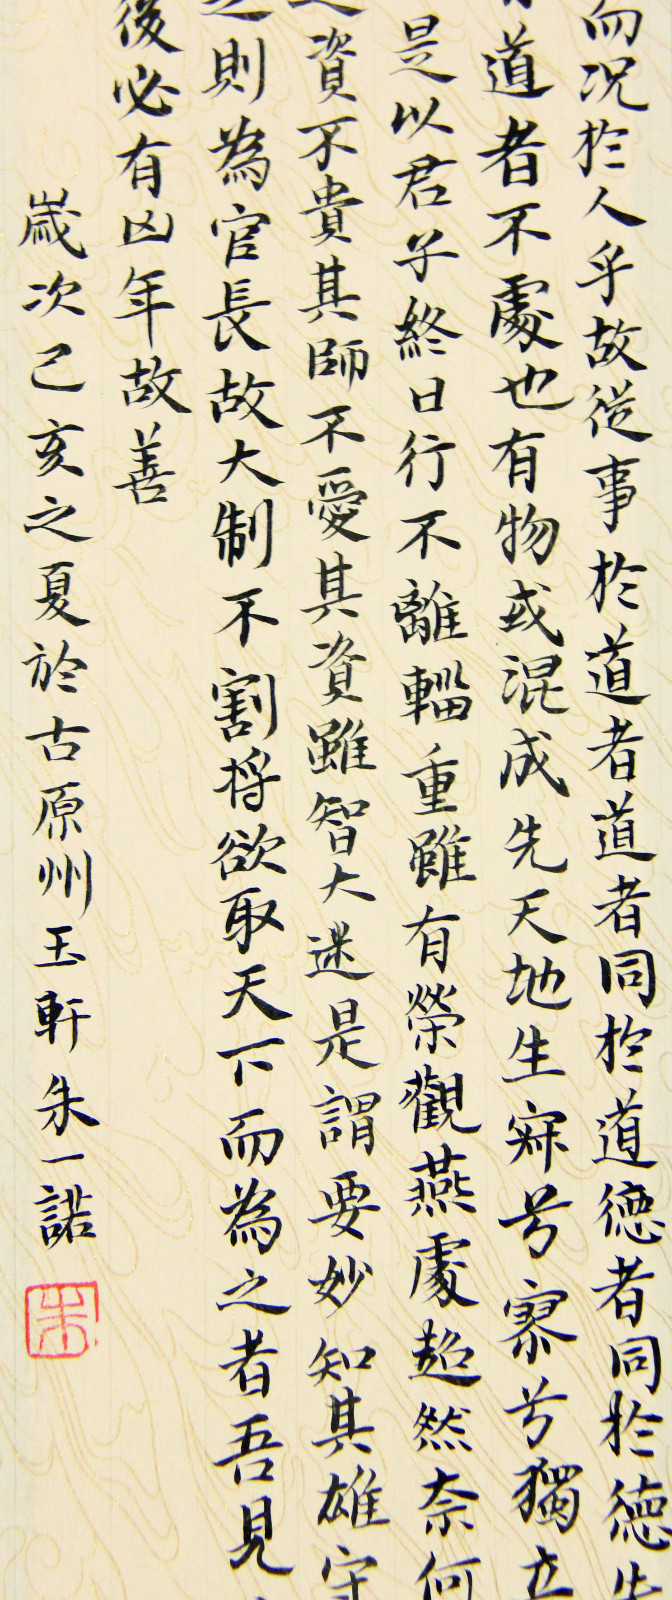 而况於人乎故從事於道者道者同於道德者同於德失
有道者不處也有物或混成先天地生寂兮寥兮獨立
是以君子終日行不離輜重雖有榮觀燕處超然奈何
之資不貴其師不愛其資雖智大迷是謂要妙知其雄守
之則為官長故大制不割将欲取天下而為之者吾見
後必有凶年故善
歲次己亥之夏於古原州玉軒朱一諾
朱